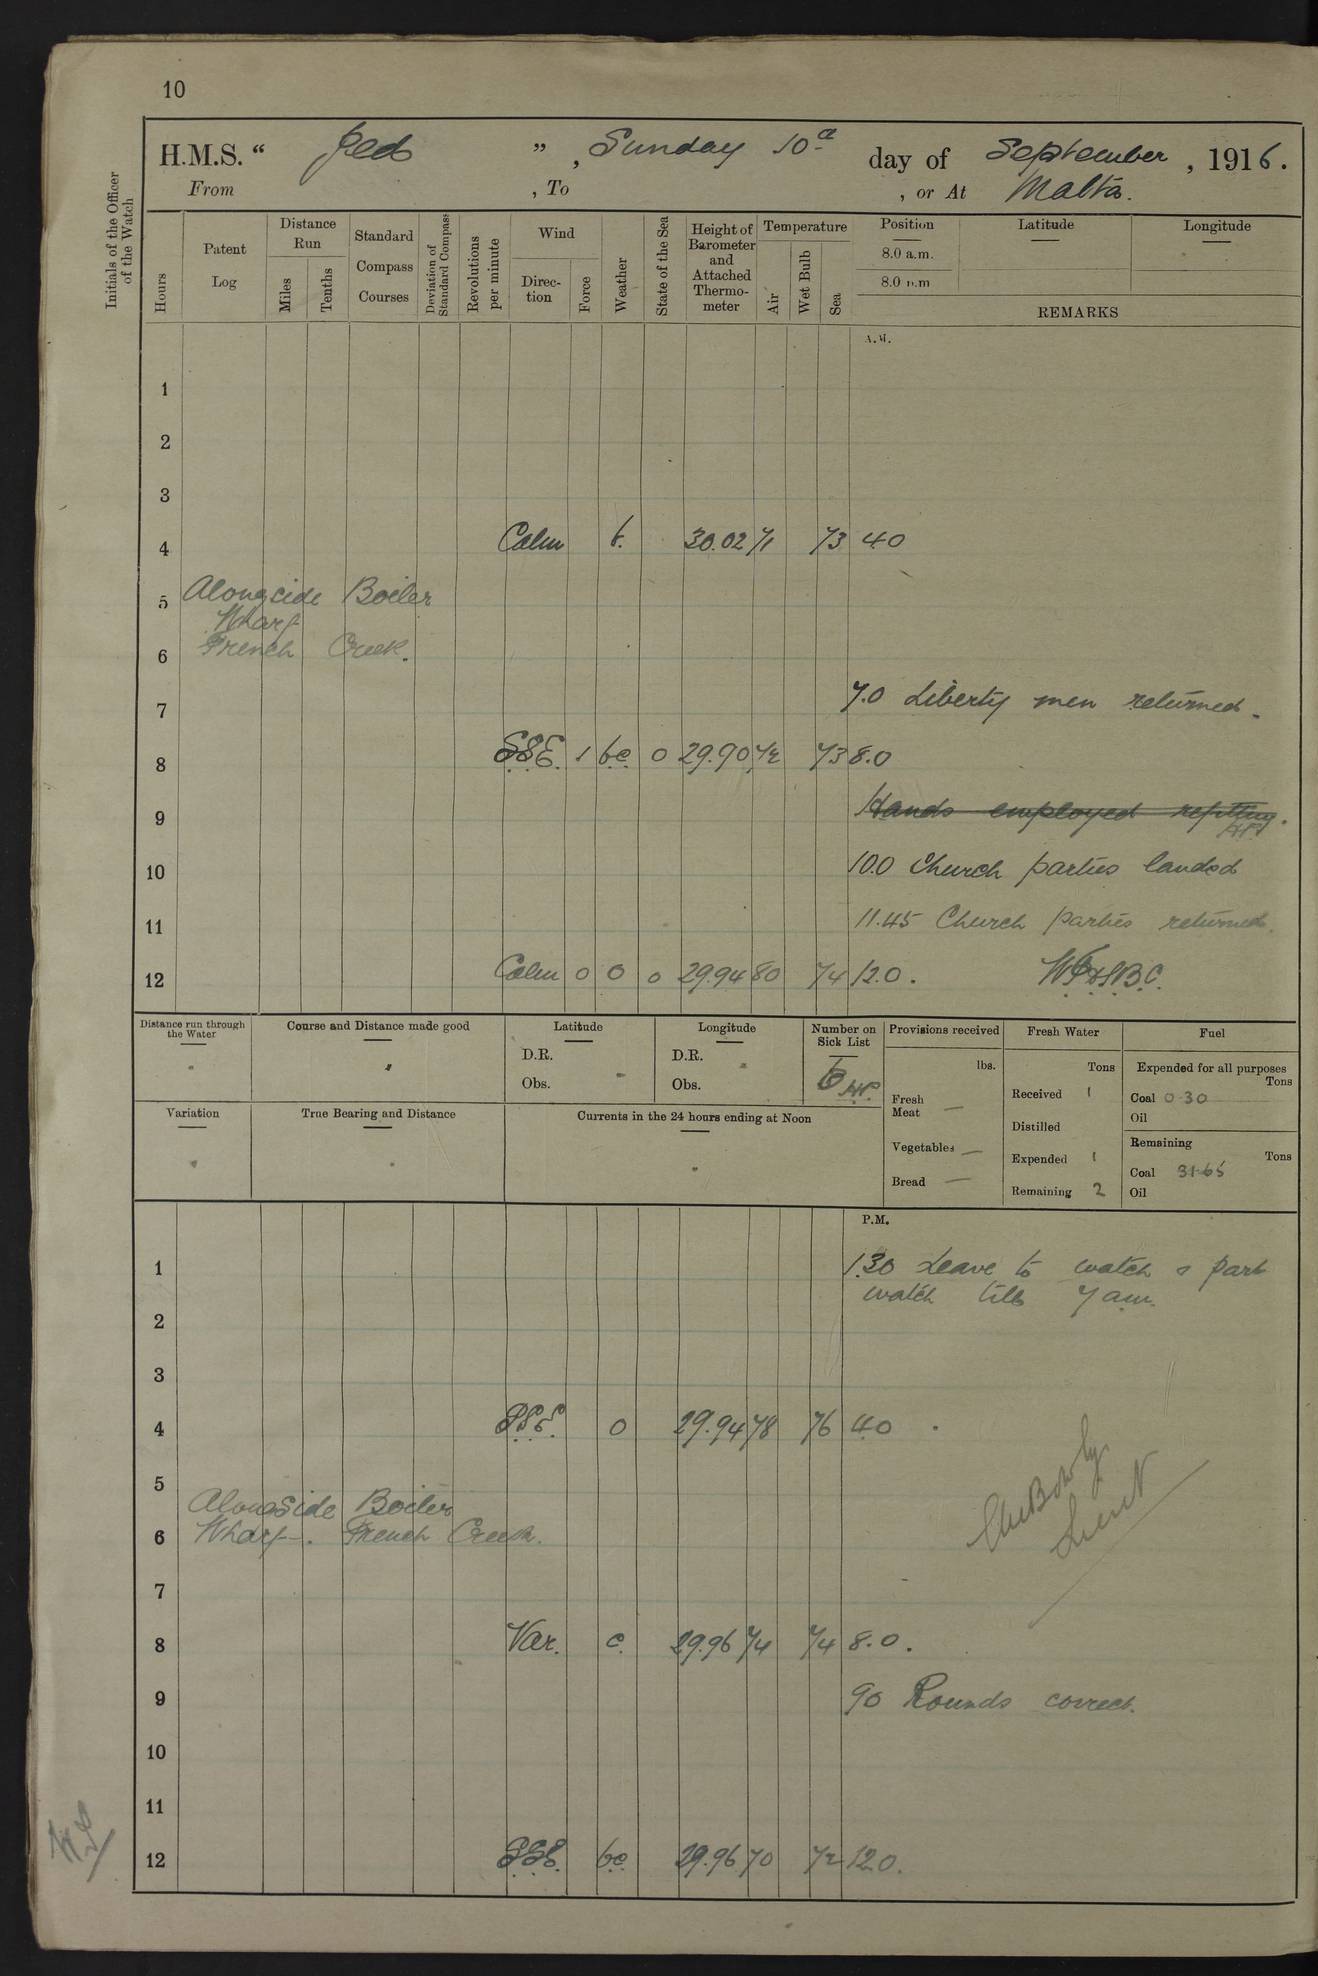 10
H.M.S. “ Jed ” , Sunday 10th day of September , 1916.
From , To , or At Malta.
Initials of the Officer of the Watch
Hours
Patent Log
Distance Run
Miles
Tenths
Standard Compass Courses
Deviation of Standard Compass
Revolutions per minute
Wind
Direction
Force
Weather
State of the Sea
Height of Barometer and Attached Thermometer
Temperature
Air
Wet Bulb
Sea
Position Latitude Longitude
8.0 a.m.
8.0 p.m
REMARKS
A.M.
1
2
3
4 Calm b. 30.02 71 73 4.0
5 Alongside Boiler
Wharf
6 French Creek.
7 7.0 Liberty men returned.
8 S.S.E. 1 bc 0 29.90 72 73 8.0
9 Hands employed refitting.
10 10.0 Church parties landed
11 11.45 Church parties returned.
12 Calm 0 0 0 29.94 80 74 12.0.
Distance run through the Water
Course and Distance made good
Latitude
D.R.
Obs.
Longitude
D.R.
Obs.
Number on Sick List
6
Provisions received
lbs.
Fresh Meat —
Vegetables —
Bread —
Fresh Water
Tons
Received 1
Distilled
Expended 1
Remaining 2
Fuel
Expended for all purposes
Tons
Coal 0.30
Oil
Remaining
Tons
Coal 31.65
Oil
Variation
True Bearing and Distance
Currents in the 24 hours ending at Noon
P.M.
1 1.30 Leave to watch & part
watch till 7 am.
2
3
4 S.S.E. 0 29.94 78 76 4.0
5 Alongside Boiler
6 Wharf. French Creek.
Lieut
7
8 Var. c. 29.96 74 74 8.0.
9 9.0 Rounds correct.
10
11
12 S.S.E. bc 29.96 70 72 12.0.